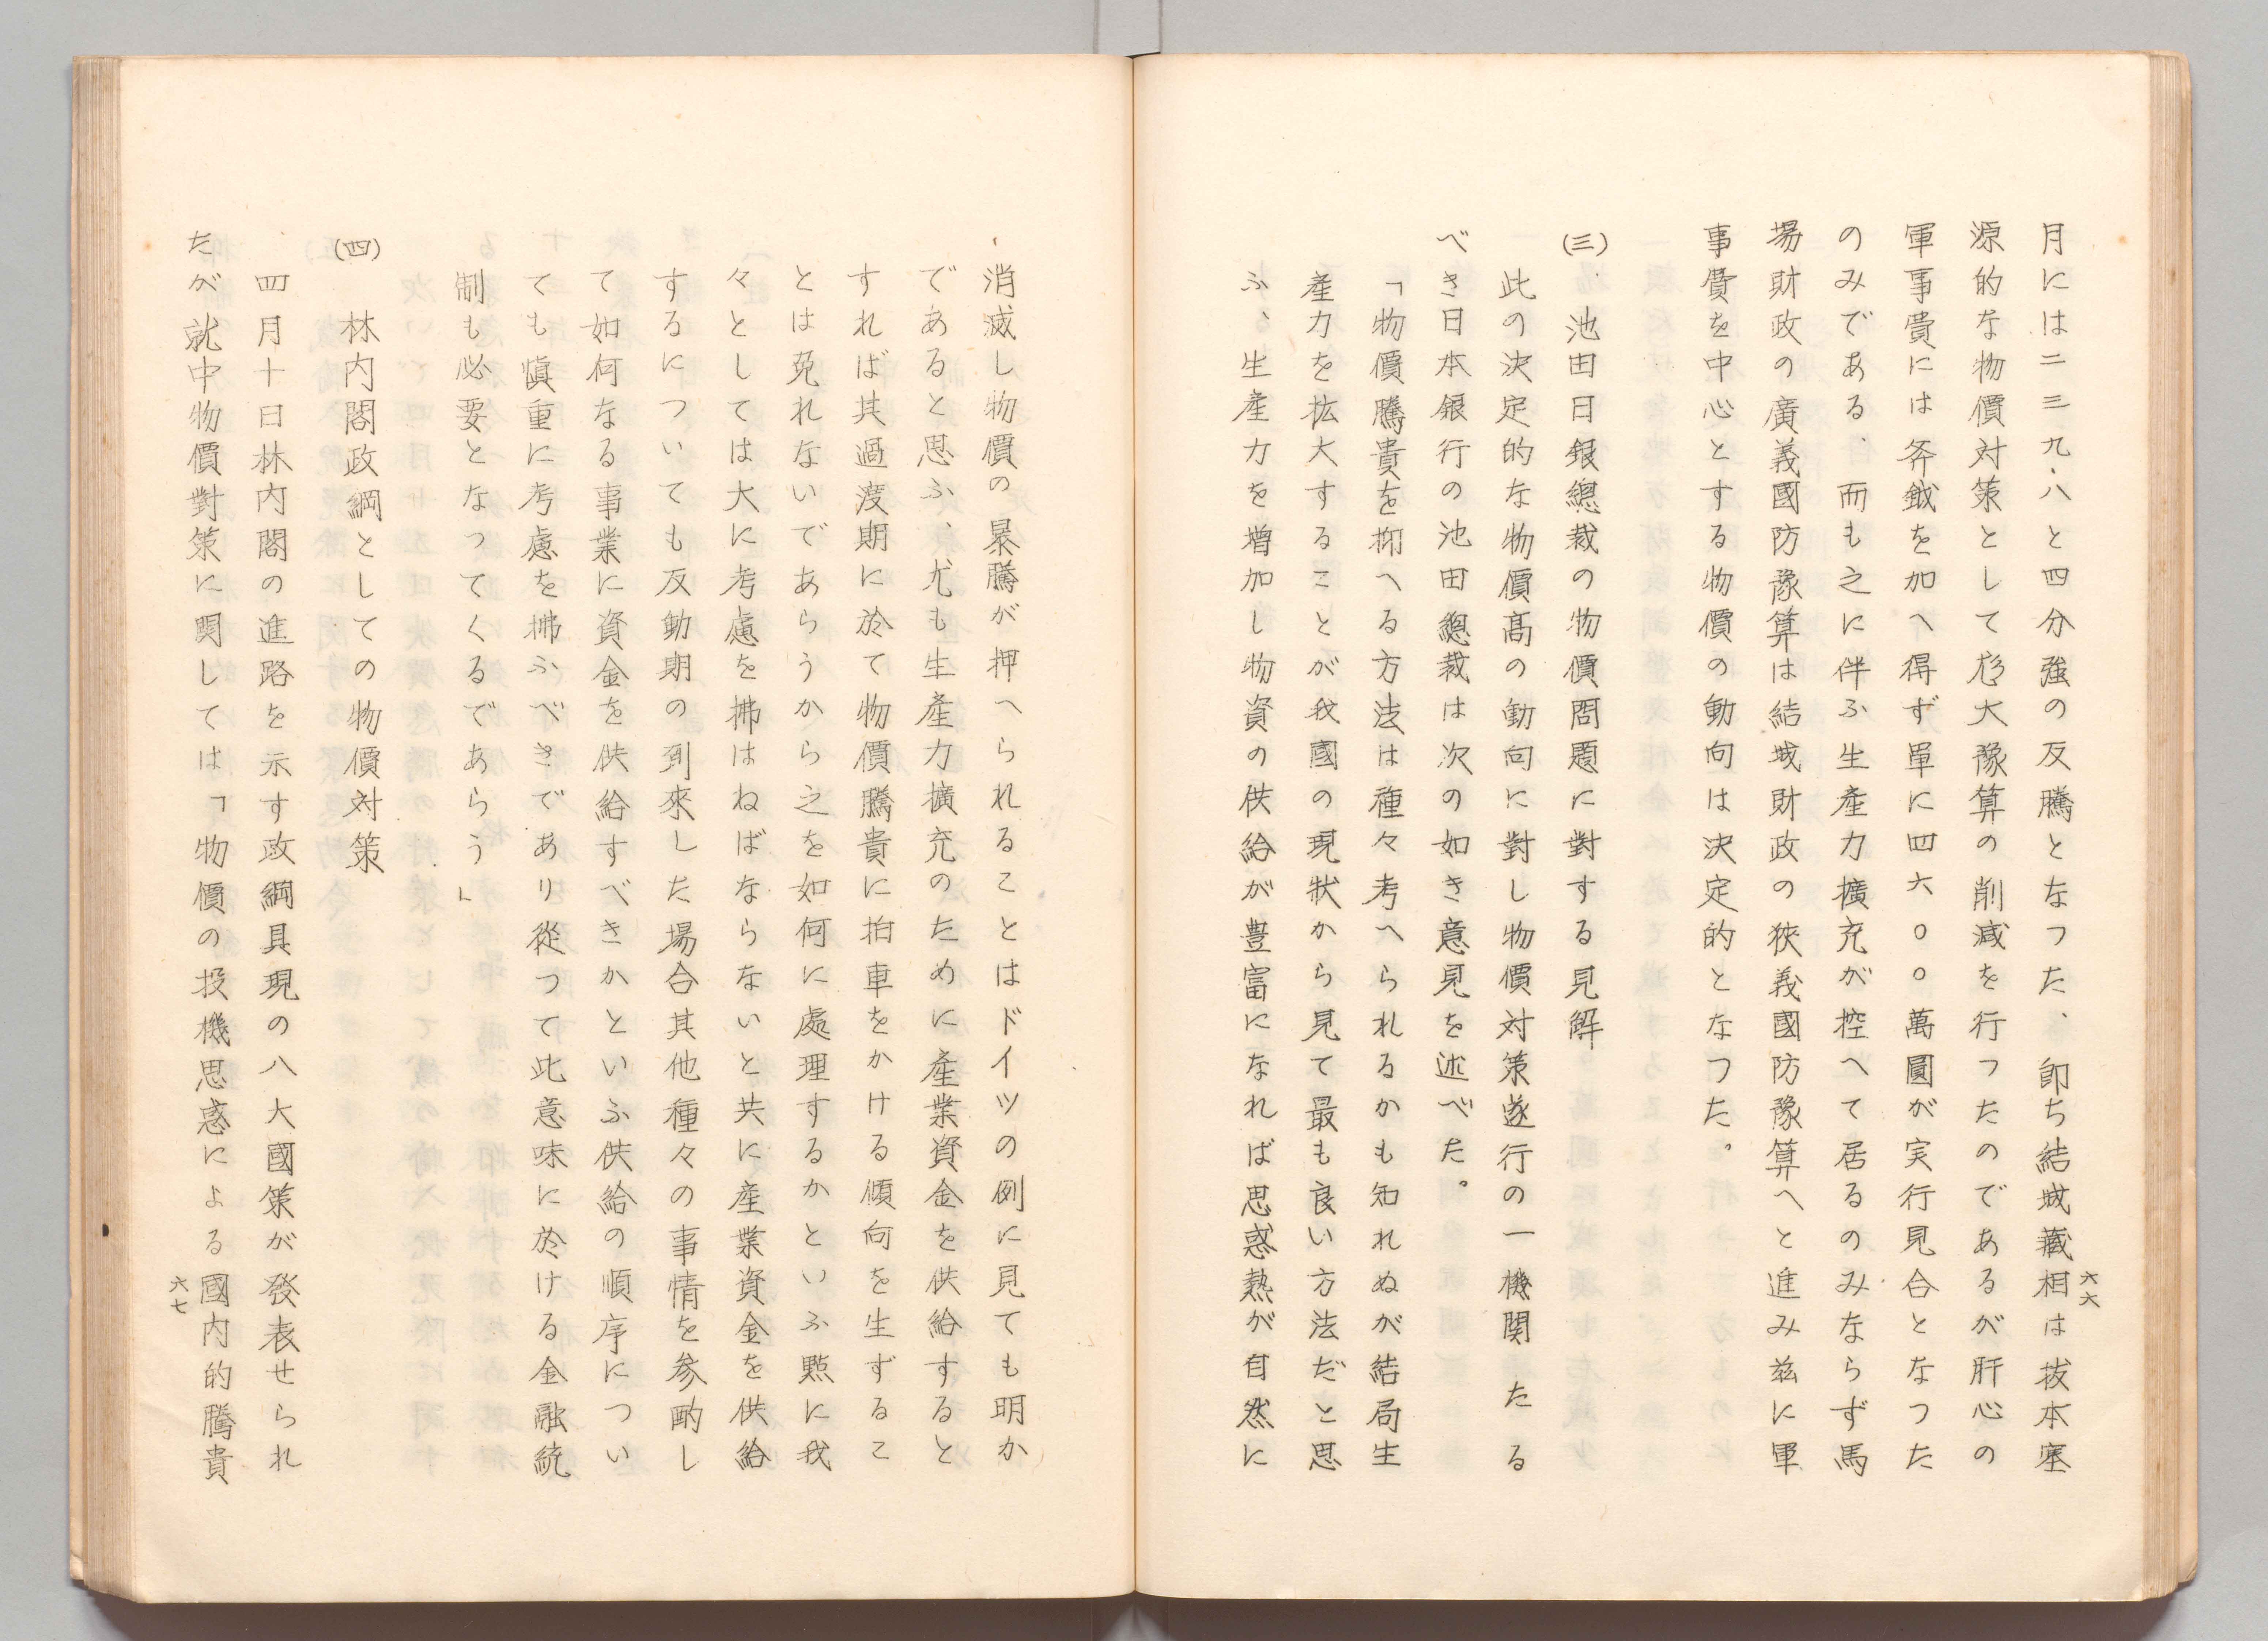 月には二三九・八と四分強の反騰となつた、卽ち結城藏相は拔本塞
源的な物價対策として尨大豫算の削減を行つたのであるが肝心の
軍事費には斧鉞を加へ得ず單に四六〇〇萬圓が実行見合となつた
のみである、而も之に伴ふ生產力擴充が控へて居るのみならず馬
場財政の廣義國防豫算は結城財政の狹義國防豫算へと進み玆に軍
事費を中心とする物價の動向は決定的となつた。
(三)、池田日銀總裁の物價問題に對する見解
此の決定的な物價高の動向に對し物價対策遂行の一機関たる
べき日本銀行の池田總裁は次の如き意見を述べた。
「物價騰貴を抑へる方法は種々考へられるかも知れぬが結局生
產力を拡大することが我國の現狀から見て最も良い方法だと思
ふ、生產力を増加し物資の供給が豊富になれば思惑熱が自然に
六六
消滅し物價の暴騰が押へられることはドイツの例に見ても明か
であると思ふ、尤も生產力擴充のために產業資金を供給すると
すれば其過渡期に於て物價騰貴に拍車をかける傾向を生ずるこ
とは免れないであらうから之を如何に處理するかといふ點に我
々としては大に考慮を拂はねばならないと共に產業資金を供給
するについても反動期の到來した場合其他種々の事情を參酌し
て如何なる事業に資金を供給すべきかといふ供給の順序につい
ても愼重に考慮を拂ふべきであり從つて此意味に於ける金融統
制も必要となってくるであらう」
(四) 林内閣政綱としての物價対策
四月十日林内閣の進路を示す政綱具現の八大國策が發表せられ
たが就中物價對策に関しては「物價の投機思惑による國内的騰貴
六七